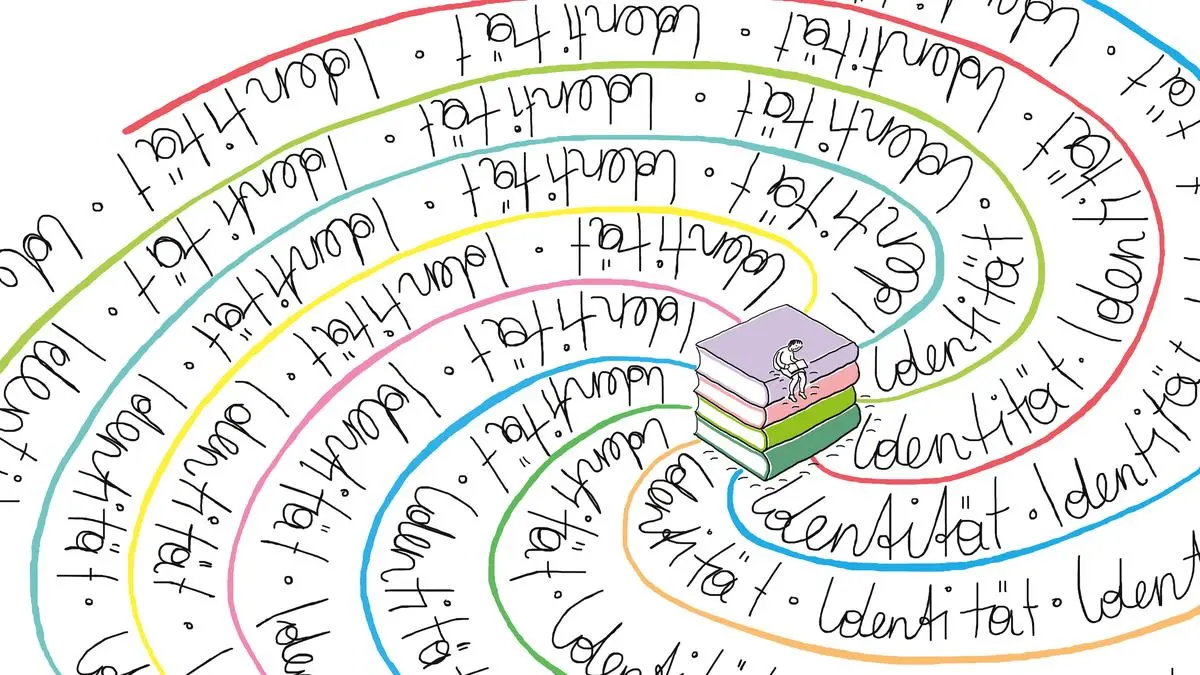 Identität · Identität
Identität · Identität · Identität · Identität · Identität · Ide
Identität · Identität · Identität · Identität · Identit
Identität · Identität · Identität · Identität ·
Identität · Identität · Identität ·
Identität · Identität · Iden
Identität · Identitä
Identität · Identität
Identität · Identität · Ident